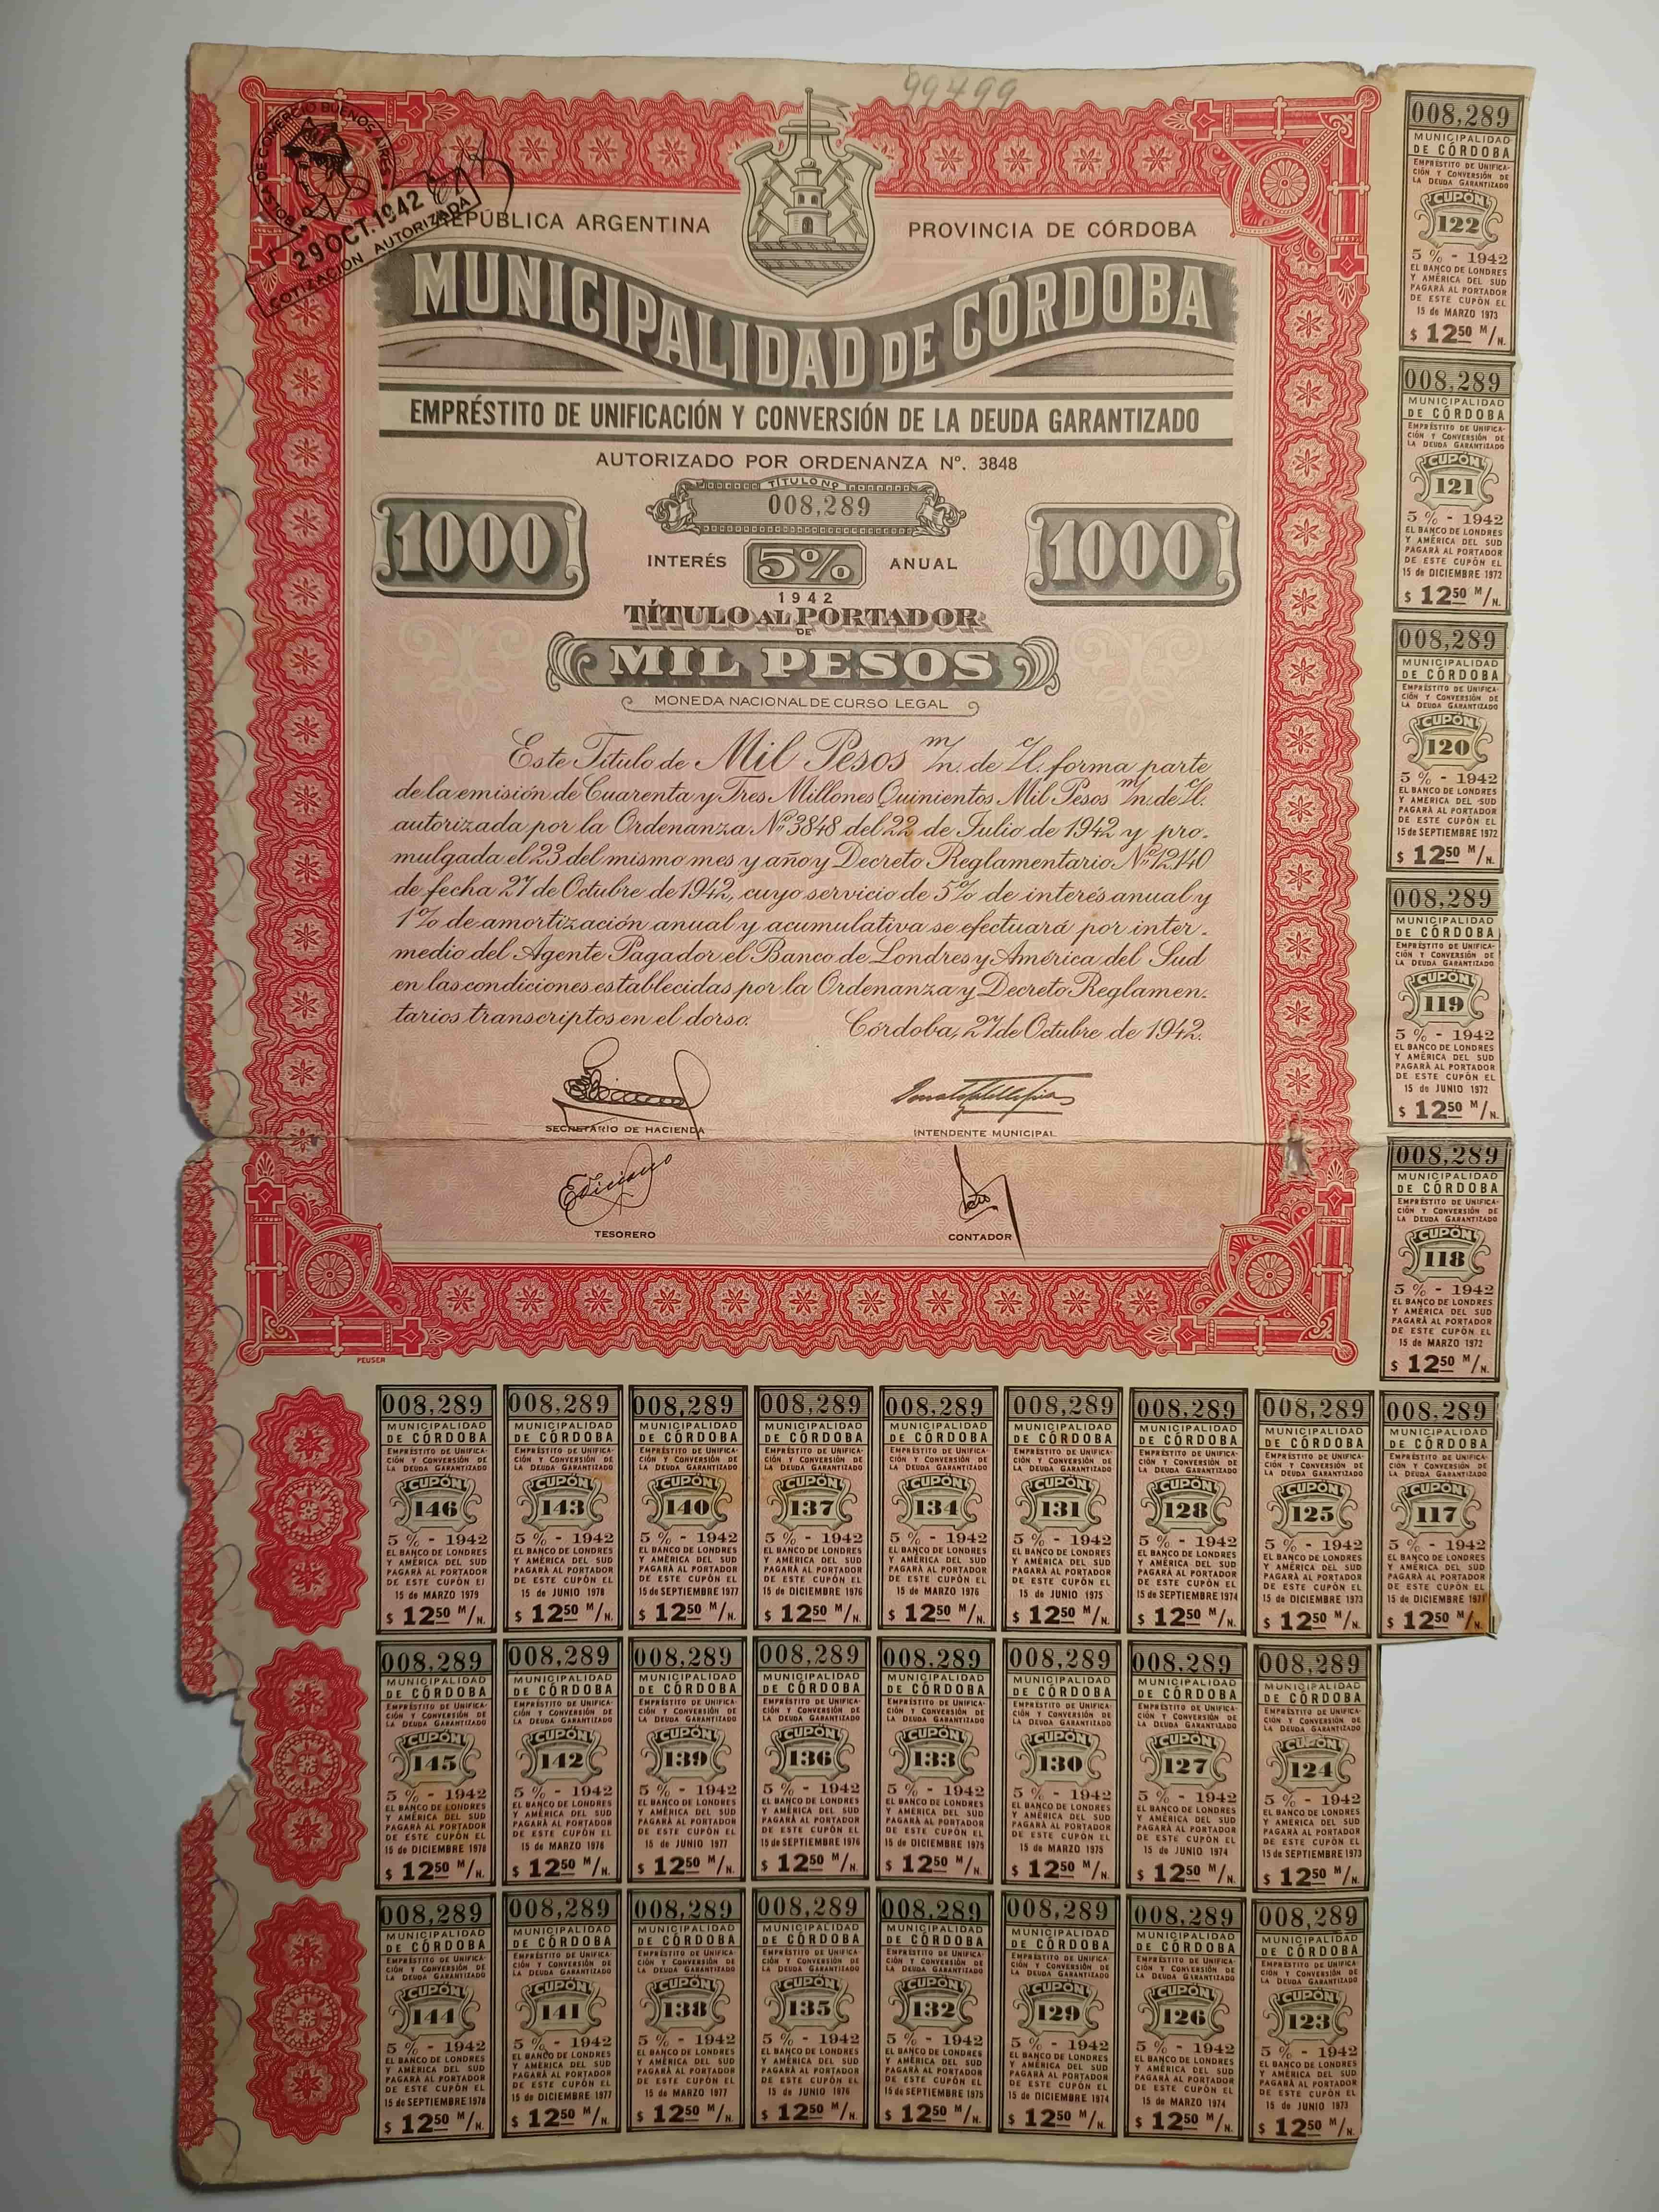 99499
BOLSA DE COMERCIO BUENOS AIRES
29 OCT. 1942
COTIZACION AUTORIZADA
REPÚBLICA ARGENTINA
PROVINCIA DE CÓRDOBA
MUNICIPALIDAD DE CÓRDOBA
EMPRÉSTITO DE UNIFICACIÓN Y CONVERSIÓN DE LA DEUDA GARANTIZADO
AUTORIZADO POR ORDENANZA Nº. 3848
TÍTULO Nº
008,289
1000
INTERÉS 5% ANUAL
1000
1942
TÍTULO AL PORTADOR
DE
MIL PESOS
MONEDA NACIONAL DE CURSO LEGAL
Este Título de Mil Pesos m/n. de c/l. forma parte
de la emisión de Cuarenta y Tres Millones Quinientos Mil Pesos m/n. de c/l.
autorizada por la Ordenanza Nº 3848 del 22 de Julio de 1942 y pro-
mulgada el 23 del mismo mes y año y Decreto Reglamentario Nº 12140
de fecha 27 de Octubre de 1942, cuyo servicio de 5% de interés anual y
1% de amortización anual y acumulativa se efectuará por inter-
medio del Agente Pagador el Banco de Londres y América del Sud
en las condiciones establecidas por la Ordenanza y Decreto Reglamen-
tarios transcriptos en el dorso.
Córdoba, 27 de Octubre de 1942.
SECRETARIO DE HACIENDA
INTENDENTE MUNICIPAL
TESORERO
CONTADOR
PEUSER
008,289
MUNICIPALIDAD
DE CÓRDOBA
EMPRÉSTITO DE UNIFICA-
CIÓN Y CONVERSIÓN DE
LA DEUDA GARANTIZADO
CUPÓN
122
5 % - 1942
EL BANCO DE LONDRES
Y AMÉRICA DEL SUD
PAGARÁ AL PORTADOR
DE ESTE CUPÓN EL
15 de MARZO 1973
$ 12.50 M/N.
008,289
MUNICIPALIDAD
DE CÓRDOBA
EMPRÉSTITO DE UNIFICA-
CIÓN Y CONVERSIÓN DE
LA DEUDA GARANTIZADO
CUPÓN
121
5 % - 1942
EL BANCO DE LONDRES
Y AMÉRICA DEL SUD
PAGARÁ AL PORTADOR
DE ESTE CUPÓN EL
15 de DICIEMBRE 1972
$ 12.50 M/N.
008,289
MUNICIPALIDAD
DE CÓRDOBA
EMPRÉSTITO DE UNIFICA-
CIÓN Y CONVERSIÓN DE
LA DEUDA GARANTIZADO
CUPÓN
120
5 % - 1942
EL BANCO DE LONDRES
Y AMÉRICA DEL SUD
PAGARÁ AL PORTADOR
DE ESTE CUPÓN EL
15 de SEPTIEMBRE 1972
$ 12.50 M/N.
008,289
MUNICIPALIDAD
DE CÓRDOBA
EMPRÉSTITO DE UNIFICA-
CIÓN Y CONVERSIÓN DE
LA DEUDA GARANTIZADO
CUPÓN
119
5 % - 1942
EL BANCO DE LONDRES
Y AMÉRICA DEL SUD
PAGARÁ AL PORTADOR
DE ESTE CUPÓN EL
15 de JUNIO 1972
$ 12.50 M/N.
008,289
MUNICIPALIDAD
DE CÓRDOBA
EMPRÉSTITO DE UNIFICA-
CIÓN Y CONVERSIÓN DE
LA DEUDA GARANTIZADO
CUPÓN
118
5 % - 1942
EL BANCO DE LONDRES
Y AMÉRICA DEL SUD
PAGARÁ AL PORTADOR
DE ESTE CUPÓN EL
15 de MARZO 1972
$ 12.50 M/N.
008,289 008,289 008,289 008,289 008,289 008,289 008,289 008,289 008,289
MUNICIPALIDAD MUNICIPALIDAD MUNICIPALIDAD MUNICIPALIDAD MUNICIPALIDAD MUNICIPALIDAD MUNICIPALIDAD MUNICIPALIDAD MUNICIPALIDAD
DE CÓRDOBA DE CÓRDOBA DE CÓRDOBA DE CÓRDOBA DE CÓRDOBA DE CÓRDOBA DE CÓRDOBA DE CÓRDOBA DE CÓRDOBA
EMPRÉSTITO DE UNIFICA- EMPRÉSTITO DE UNIFICA- EMPRÉSTITO DE UNIFICA- EMPRÉSTITO DE UNIFICA- EMPRÉSTITO DE UNIFICA- EMPRÉSTITO DE UNIFICA- EMPRÉSTITO DE UNIFICA- EMPRÉSTITO DE UNIFICA- EMPRÉSTITO DE UNIFICA-
CIÓN Y CONVERSIÓN DE CIÓN Y CONVERSIÓN DE CIÓN Y CONVERSIÓN DE CIÓN Y CONVERSIÓN DE CIÓN Y CONVERSIÓN DE CIÓN Y CONVERSIÓN DE CIÓN Y CONVERSIÓN DE CIÓN Y CONVERSIÓN DE CIÓN Y CONVERSIÓN DE
LA DEUDA GARANTIZADO LA DEUDA GARANTIZADO LA DEUDA GARANTIZADO LA DEUDA GARANTIZADO LA DEUDA GARANTIZADO LA DEUDA GARANTIZADO LA DEUDA GARANTIZADO LA DEUDA GARANTIZADO LA DEUDA GARANTIZADO
CUPÓN CUPÓN CUPÓN CUPÓN CUPÓN CUPÓN CUPÓN CUPÓN CUPÓN
146 143 140 137 134 131 128 125 117
5 % - 1942 5 % - 1942 5 % - 1942 5 % - 1942 5 % - 1942 5 % - 1942 5 % - 1942 5 % - 1942 5 % - 1942
EL BANCO DE LONDRES EL BANCO DE LONDRES EL BANCO DE LONDRES EL BANCO DE LONDRES EL BANCO DE LONDRES EL BANCO DE LONDRES EL BANCO DE LONDRES EL BANCO DE LONDRES EL BANCO DE LONDRES
Y AMÉRICA DEL SUD Y AMÉRICA DEL SUD Y AMÉRICA DEL SUD Y AMÉRICA DEL SUD Y AMÉRICA DEL SUD Y AMÉRICA DEL SUD Y AMÉRICA DEL SUD Y AMÉRICA DEL SUD Y AMÉRICA DEL SUD
PAGARÁ AL PORTADOR PAGARÁ AL PORTADOR PAGARÁ AL PORTADOR PAGARÁ AL PORTADOR PAGARÁ AL PORTADOR PAGARÁ AL PORTADOR PAGARÁ AL PORTADOR PAGARÁ AL PORTADOR PAGARÁ AL PORTADOR
DE ESTE CUPÓN EL DE ESTE CUPÓN EL DE ESTE CUPÓN EL DE ESTE CUPÓN EL DE ESTE CUPÓN EL DE ESTE CUPÓN EL DE ESTE CUPÓN EL DE ESTE CUPÓN EL DE ESTE CUPÓN EL
15 de MARZO 1979 15 de JUNIO 1978 15 de SEPTIEMBRE 1977 15 de DICIEMBRE 1976 15 de MARZO 1976 15 de JUNIO 1975 15 de SEPTIEMBRE 1974 15 de DICIEMBRE 1973 15 de DICIEMBRE 1971
$ 12.50 M/N. $ 12.50 M/N. $ 12.50 M/N. $ 12.50 M/N. $ 12.50 M/N. $ 12.50 M/N. $ 12.50 M/N. $ 12.50 M/N. $ 12.50 M/N.
008,289 008,289 008,289 008,289 008,289 008,289 008,289 008,289
MUNICIPALIDAD MUNICIPALIDAD MUNICIPALIDAD MUNICIPALIDAD MUNICIPALIDAD MUNICIPALIDAD MUNICIPALIDAD MUNICIPALIDAD
DE CÓRDOBA DE CÓRDOBA DE CÓRDOBA DE CÓRDOBA DE CÓRDOBA DE CÓRDOBA DE CÓRDOBA DE CÓRDOBA
EMPRÉSTITO DE UNIFICA- EMPRÉSTITO DE UNIFICA- EMPRÉSTITO DE UNIFICA- EMPRÉSTITO DE UNIFICA- EMPRÉSTITO DE UNIFICA- EMPRÉSTITO DE UNIFICA- EMPRÉSTITO DE UNIFICA- EMPRÉSTITO DE UNIFICA-
CIÓN Y CONVERSIÓN DE CIÓN Y CONVERSIÓN DE CIÓN Y CONVERSIÓN DE CIÓN Y CONVERSIÓN DE CIÓN Y CONVERSIÓN DE CIÓN Y CONVERSIÓN DE CIÓN Y CONVERSIÓN DE CIÓN Y CONVERSIÓN DE
LA DEUDA GARANTIZADO LA DEUDA GARANTIZADO LA DEUDA GARANTIZADO LA DEUDA GARANTIZADO LA DEUDA GARANTIZADO LA DEUDA GARANTIZADO LA DEUDA GARANTIZADO LA DEUDA GARANTIZADO
CUPÓN CUPÓN CUPÓN CUPÓN CUPÓN CUPÓN CUPÓN CUPÓN
145 142 139 136 133 130 127 124
5 % - 1942 5 % - 1942 5 % - 1942 5 % - 1942 5 % - 1942 5 % - 1942 5 % - 1942 5 % - 1942
EL BANCO DE LONDRES EL BANCO DE LONDRES EL BANCO DE LONDRES EL BANCO DE LONDRES EL BANCO DE LONDRES EL BANCO DE LONDRES EL BANCO DE LONDRES EL BANCO DE LONDRES
Y AMÉRICA DEL SUD Y AMÉRICA DEL SUD Y AMÉRICA DEL SUD Y AMÉRICA DEL SUD Y AMÉRICA DEL SUD Y AMÉRICA DEL SUD Y AMÉRICA DEL SUD Y AMÉRICA DEL SUD
PAGARÁ AL PORTADOR PAGARÁ AL PORTADOR PAGARÁ AL PORTADOR PAGARÁ AL PORTADOR PAGARÁ AL PORTADOR PAGARÁ AL PORTADOR PAGARÁ AL PORTADOR PAGARÁ AL PORTADOR
DE ESTE CUPÓN EL DE ESTE CUPÓN EL DE ESTE CUPÓN EL DE ESTE CUPÓN EL DE ESTE CUPÓN EL DE ESTE CUPÓN EL DE ESTE CUPÓN EL DE ESTE CUPÓN EL
15 de DICIEMBRE 1978 15 de MARZO 1978 15 de JUNIO 1977 15 de SEPTIEMBRE 1976 15 de DICIEMBRE 1975 15 de MARZO 1975 15 de JUNIO 1974 15 de SEPTIEMBRE 1973
$ 12.50 M/N. $ 12.50 M/N. $ 12.50 M/N. $ 12.50 M/N. $ 12.50 M/N. $ 12.50 M/N. $ 12.50 M/N. $ 12.50 M/N.
008,289 008,289 008,289 008,289 008,289 008,289 008,289 008,289
MUNICIPALIDAD MUNICIPALIDAD MUNICIPALIDAD MUNICIPALIDAD MUNICIPALIDAD MUNICIPALIDAD MUNICIPALIDAD MUNICIPALIDAD
DE CÓRDOBA DE CÓRDOBA DE CÓRDOBA DE CÓRDOBA DE CÓRDOBA DE CÓRDOBA DE CÓRDOBA DE CÓRDOBA
EMPRÉSTITO DE UNIFICA- EMPRÉSTITO DE UNIFICA- EMPRÉSTITO DE UNIFICA- EMPRÉSTITO DE UNIFICA- EMPRÉSTITO DE UNIFICA- EMPRÉSTITO DE UNIFICA- EMPRÉSTITO DE UNIFICA- EMPRÉSTITO DE UNIFICA-
CIÓN Y CONVERSIÓN DE CIÓN Y CONVERSIÓN DE CIÓN Y CONVERSIÓN DE CIÓN Y CONVERSIÓN DE CIÓN Y CONVERSIÓN DE CIÓN Y CONVERSIÓN DE CIÓN Y CONVERSIÓN DE CIÓN Y CONVERSIÓN DE
LA DEUDA GARANTIZADO LA DEUDA GARANTIZADO LA DEUDA GARANTIZADO LA DEUDA GARANTIZADO LA DEUDA GARANTIZADO LA DEUDA GARANTIZADO LA DEUDA GARANTIZADO LA DEUDA GARANTIZADO
CUPÓN CUPÓN CUPÓN CUPÓN CUPÓN CUPÓN CUPÓN CUPÓN
144 141 138 135 132 129 126 123
5 % - 1942 5 % - 1942 5 % - 1942 5 % - 1942 5 % - 1942 5 % - 1942 5 % - 1942 5 % - 1942
EL BANCO DE LONDRES EL BANCO DE LONDRES EL BANCO DE LONDRES EL BANCO DE LONDRES EL BANCO DE LONDRES EL BANCO DE LONDRES EL BANCO DE LONDRES EL BANCO DE LONDRES
Y AMÉRICA DEL SUD Y AMÉRICA DEL SUD Y AMÉRICA DEL SUD Y AMÉRICA DEL SUD Y AMÉRICA DEL SUD Y AMÉRICA DEL SUD Y AMÉRICA DEL SUD Y AMÉRICA DEL SUD
PAGARÁ AL PORTADOR PAGARÁ AL PORTADOR PAGARÁ AL PORTADOR PAGARÁ AL PORTADOR PAGARÁ AL PORTADOR PAGARÁ AL PORTADOR PAGARÁ AL PORTADOR PAGARÁ AL PORTADOR
DE ESTE CUPÓN EL DE ESTE CUPÓN EL DE ESTE CUPÓN EL DE ESTE CUPÓN EL DE ESTE CUPÓN EL DE ESTE CUPÓN EL DE ESTE CUPÓN EL DE ESTE CUPÓN EL
15 de SEPTIEMBRE 1978 15 de DICIEMBRE 1977 15 de MARZO 1977 15 de JUNIO 1976 15 de SEPTIEMBRE 1975 15 de DICIEMBRE 1974 15 de MARZO 1974 15 de JUNIO 1973
$ 12.50 M/N. $ 12.50 M/N. $ 12.50 M/N. $ 12.50 M/N. $ 12.50 M/N. $ 12.50 M/N. $ 12.50 M/N. $ 12.50 M/N.